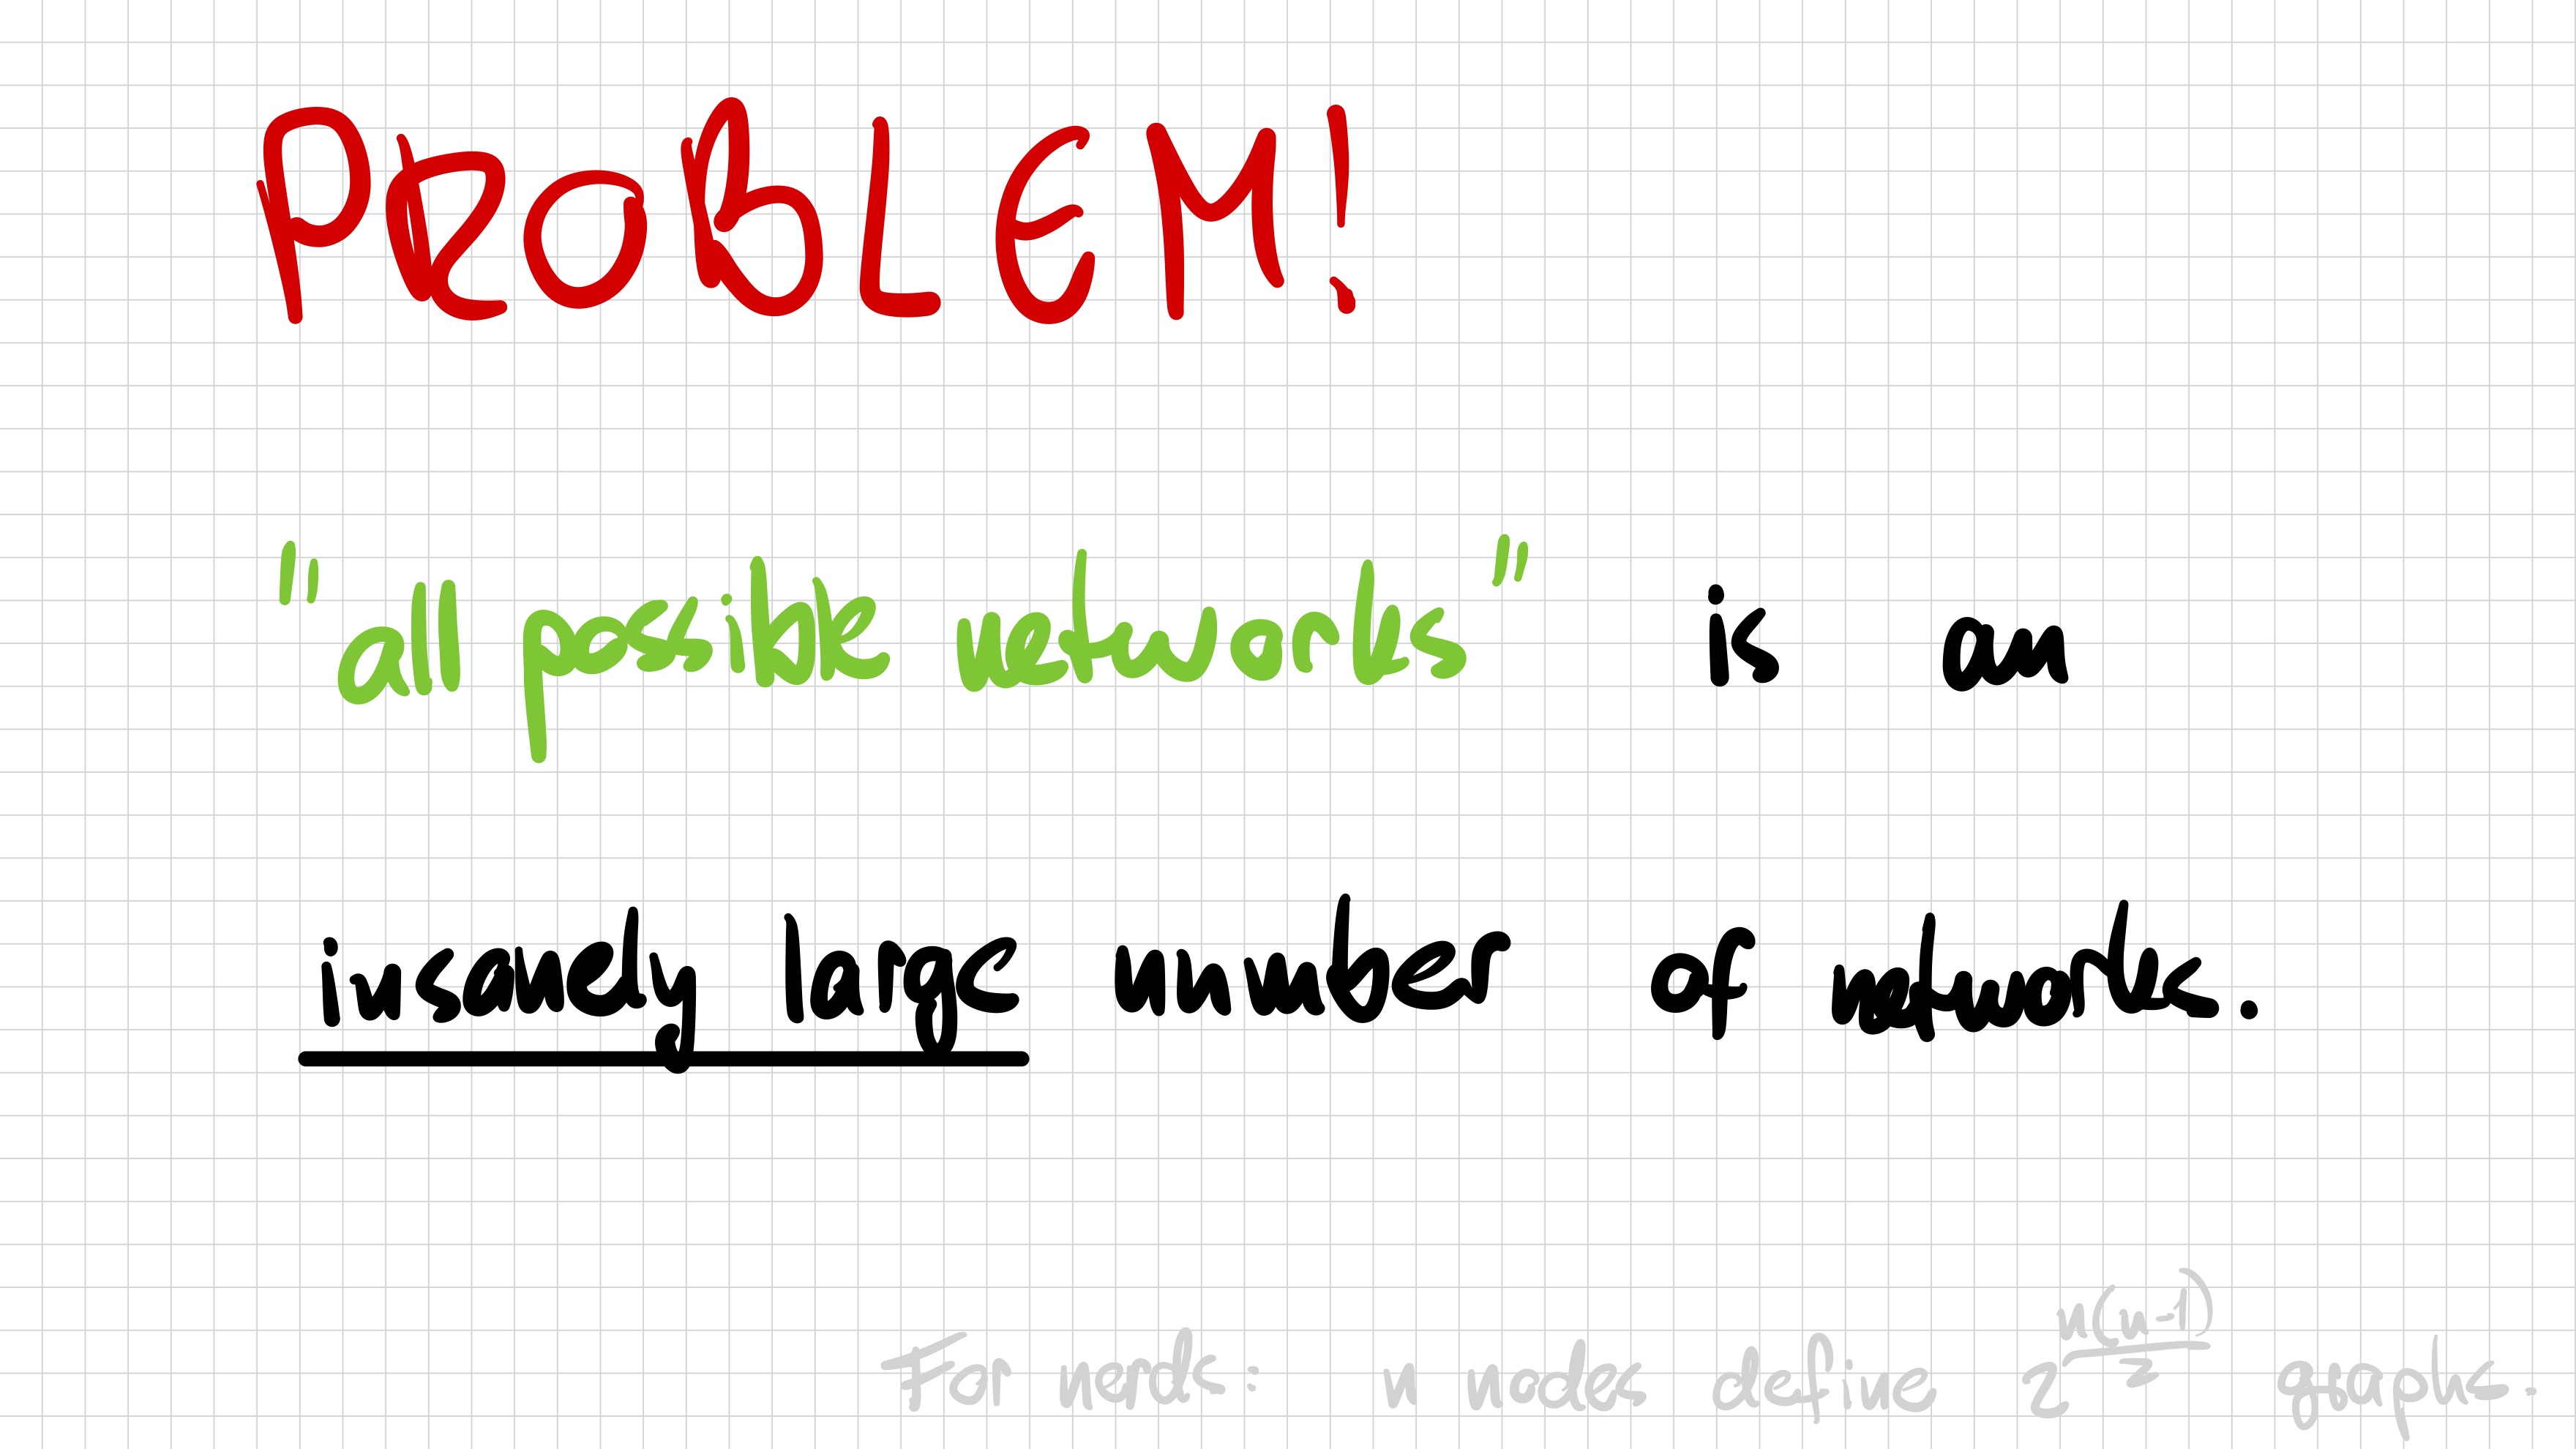 PROBLEM!
"all possible networks" is an
insanely large number of networks.
For nerds: n nodes define 2^(n(n-1)/2) graphs.